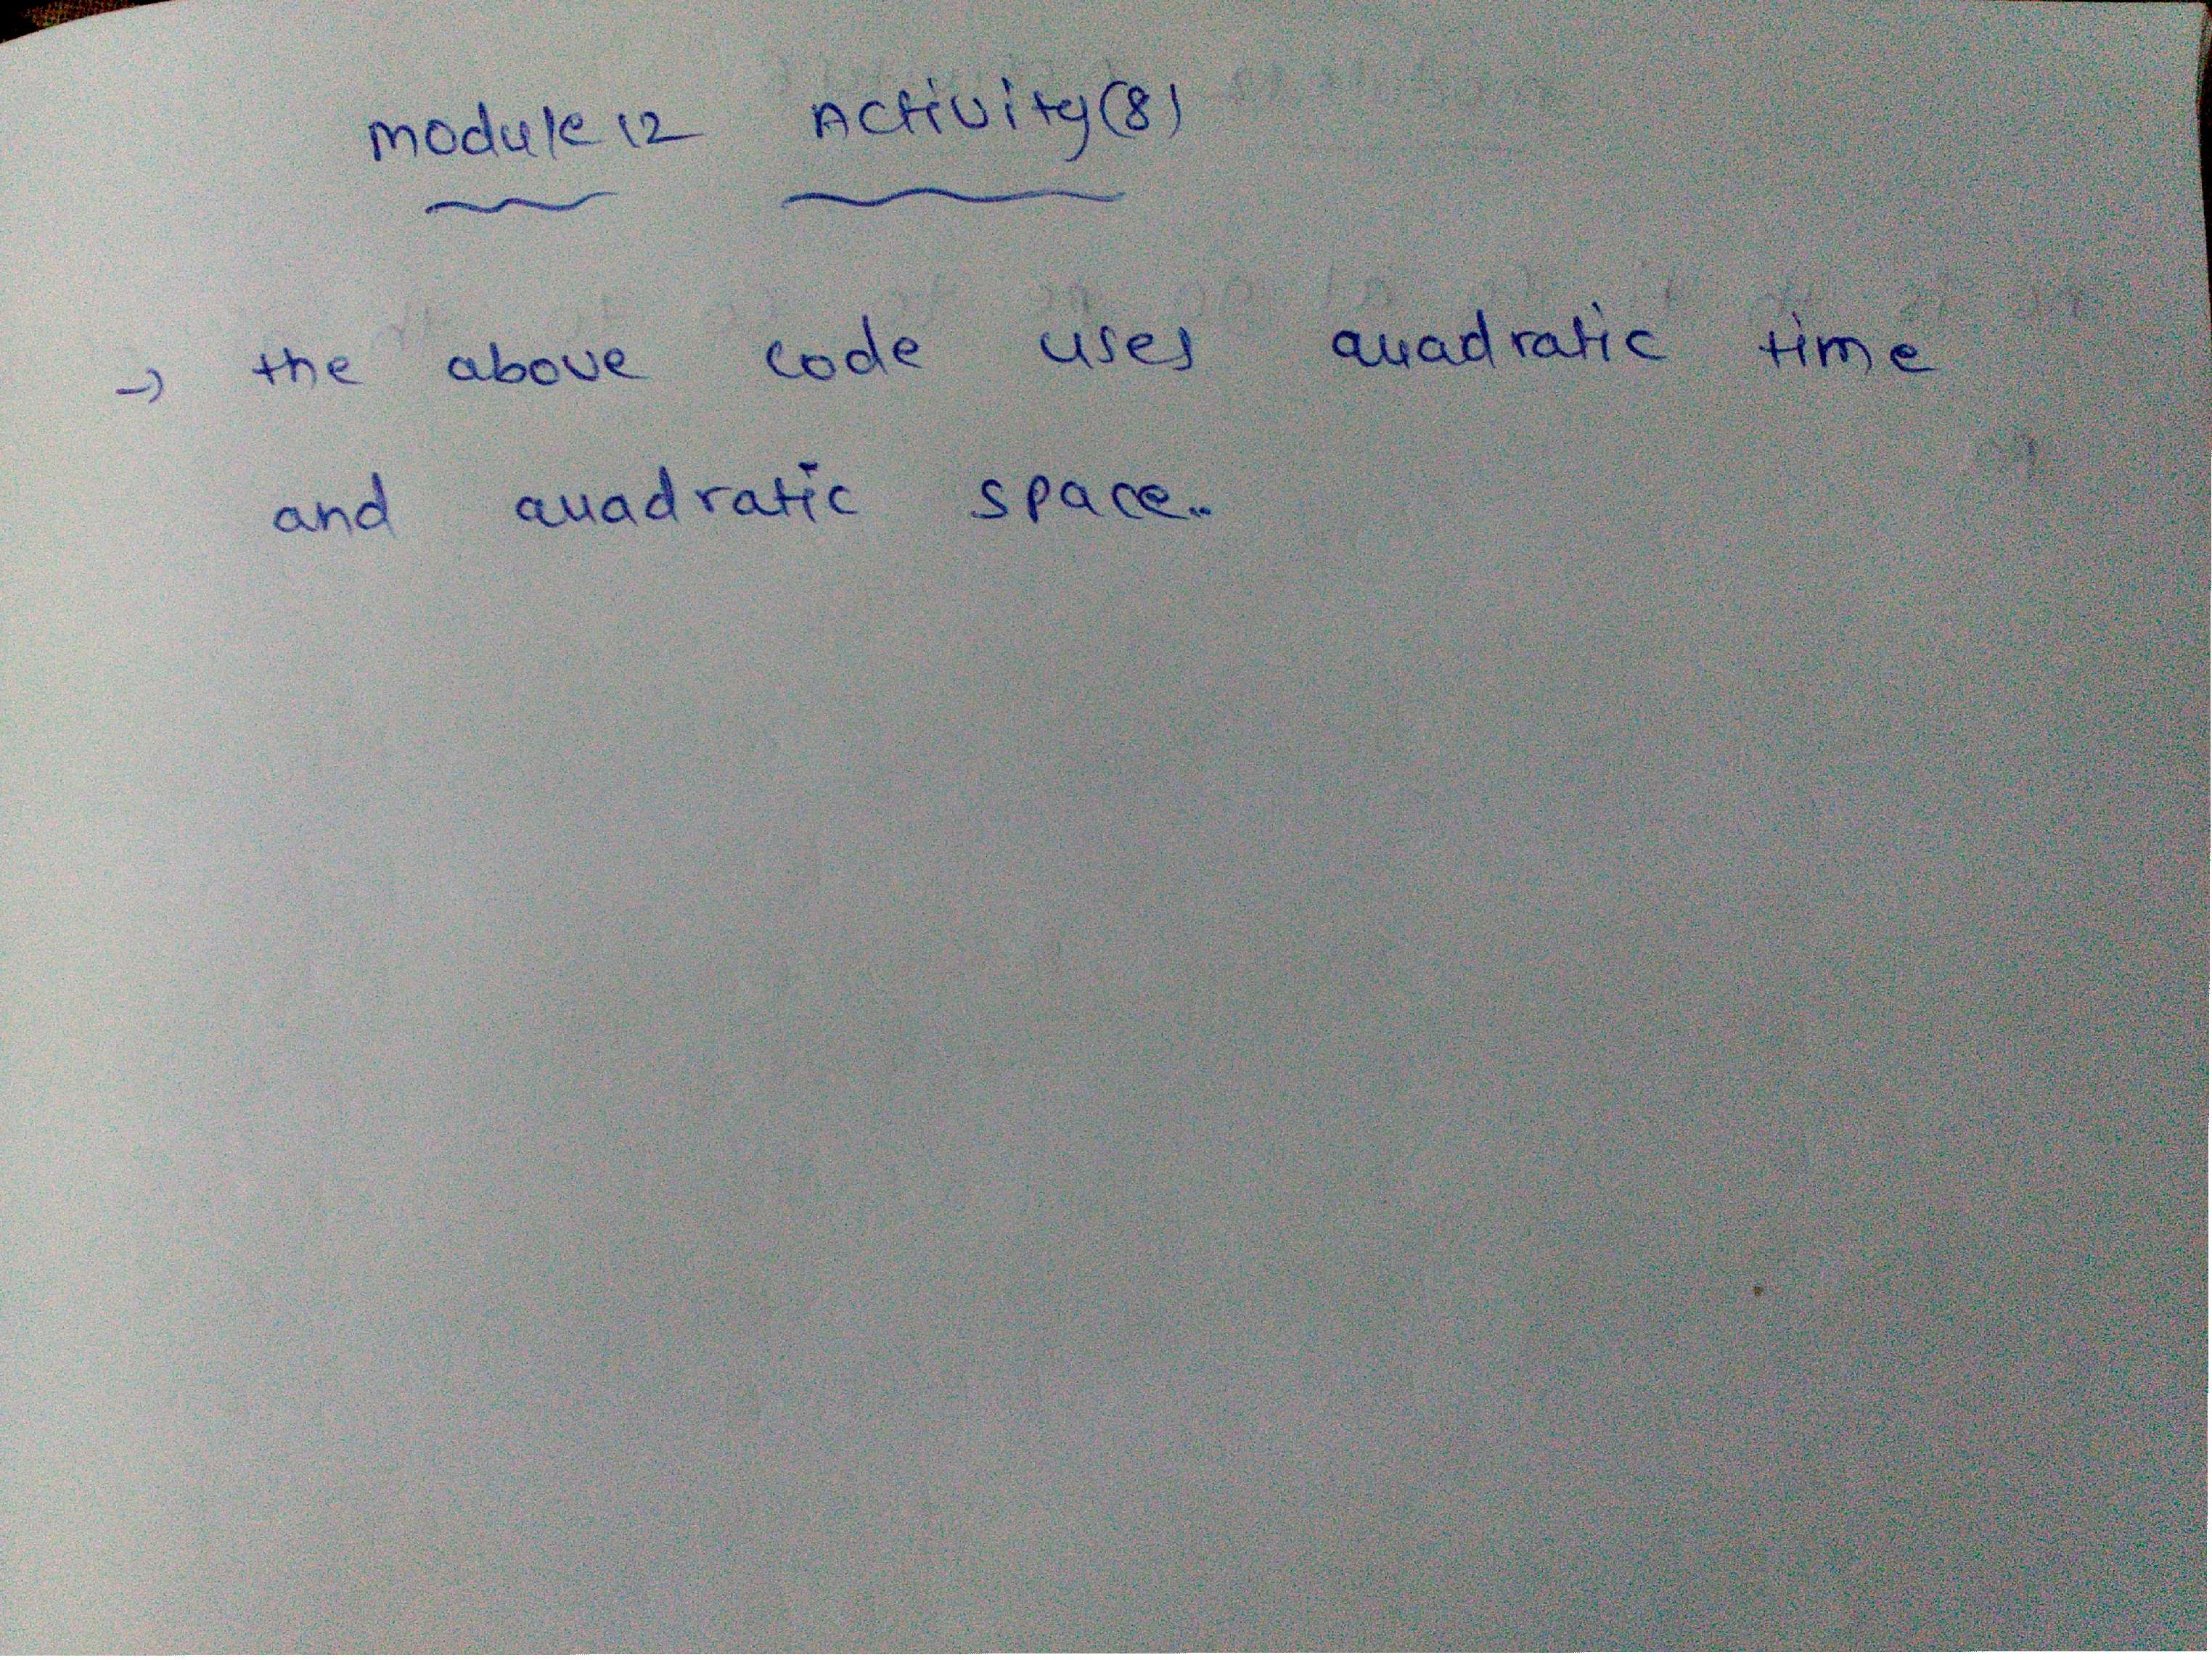 Module 12 Activity(8)
→ the above code uses quadratic time
and quadratic space..